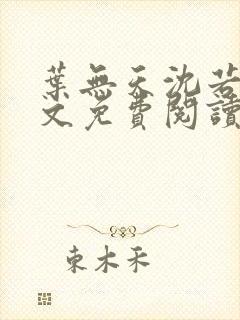 葉無天沈若
文免費閱讀
東木禾